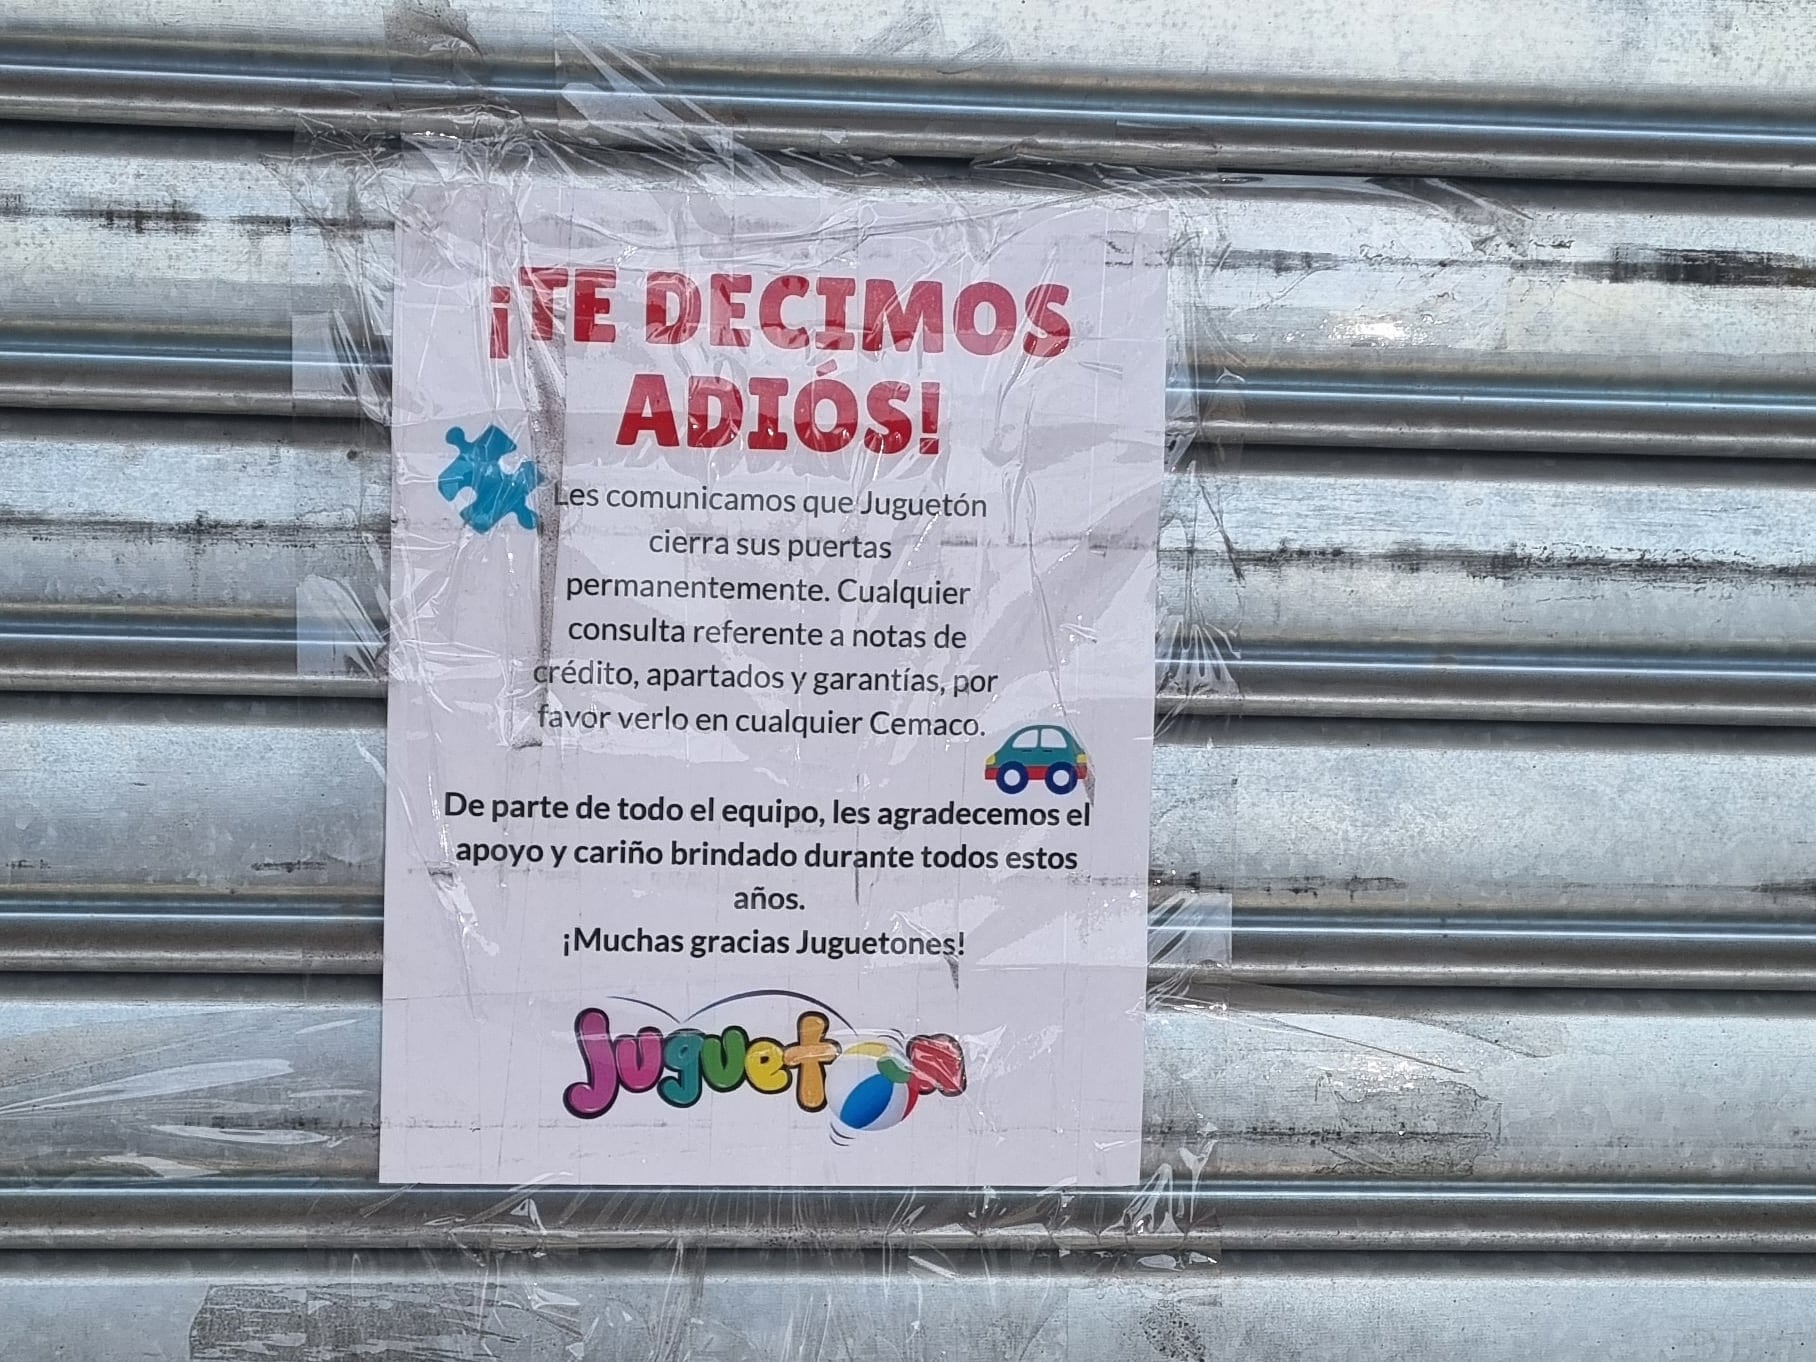 ¡TE DECIMOS
ADIÓS!
Les comunicamos que Juguetón
cierra sus puertas
permanentemente. Cualquier
consulta referente a notas de
crédito, apartados y garantías, por
favor verlo en cualquier Cemaco.
De parte de todo el equipo, les agradecemos el
apoyo y cariño brindado durante todos estos
años.
¡Muchas gracias Juguetones!
Juguetón